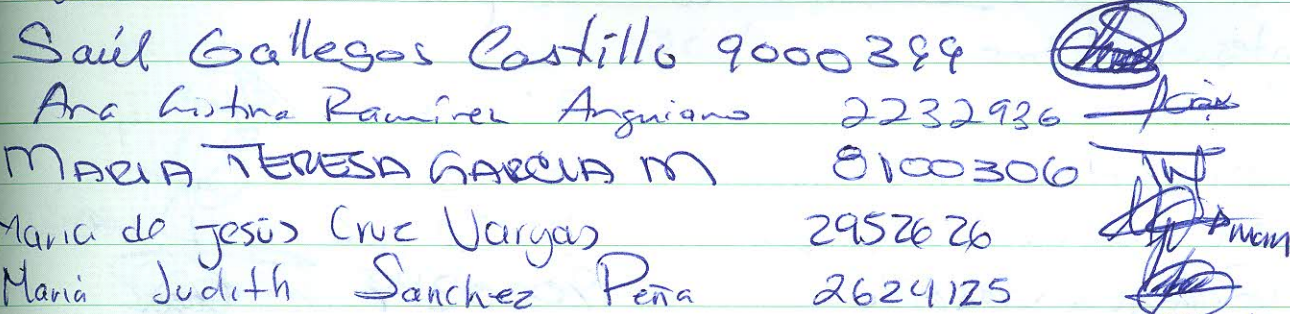 Saúl Gallegos Castillo 9000399
Ana Cristina Ramírez Anguiano 2232936
MARIA TERESA GARCIA M 8100306
Maria de Jesús Cruz Vargas 2952626
Maria Judith Sanchez Peña 2624125